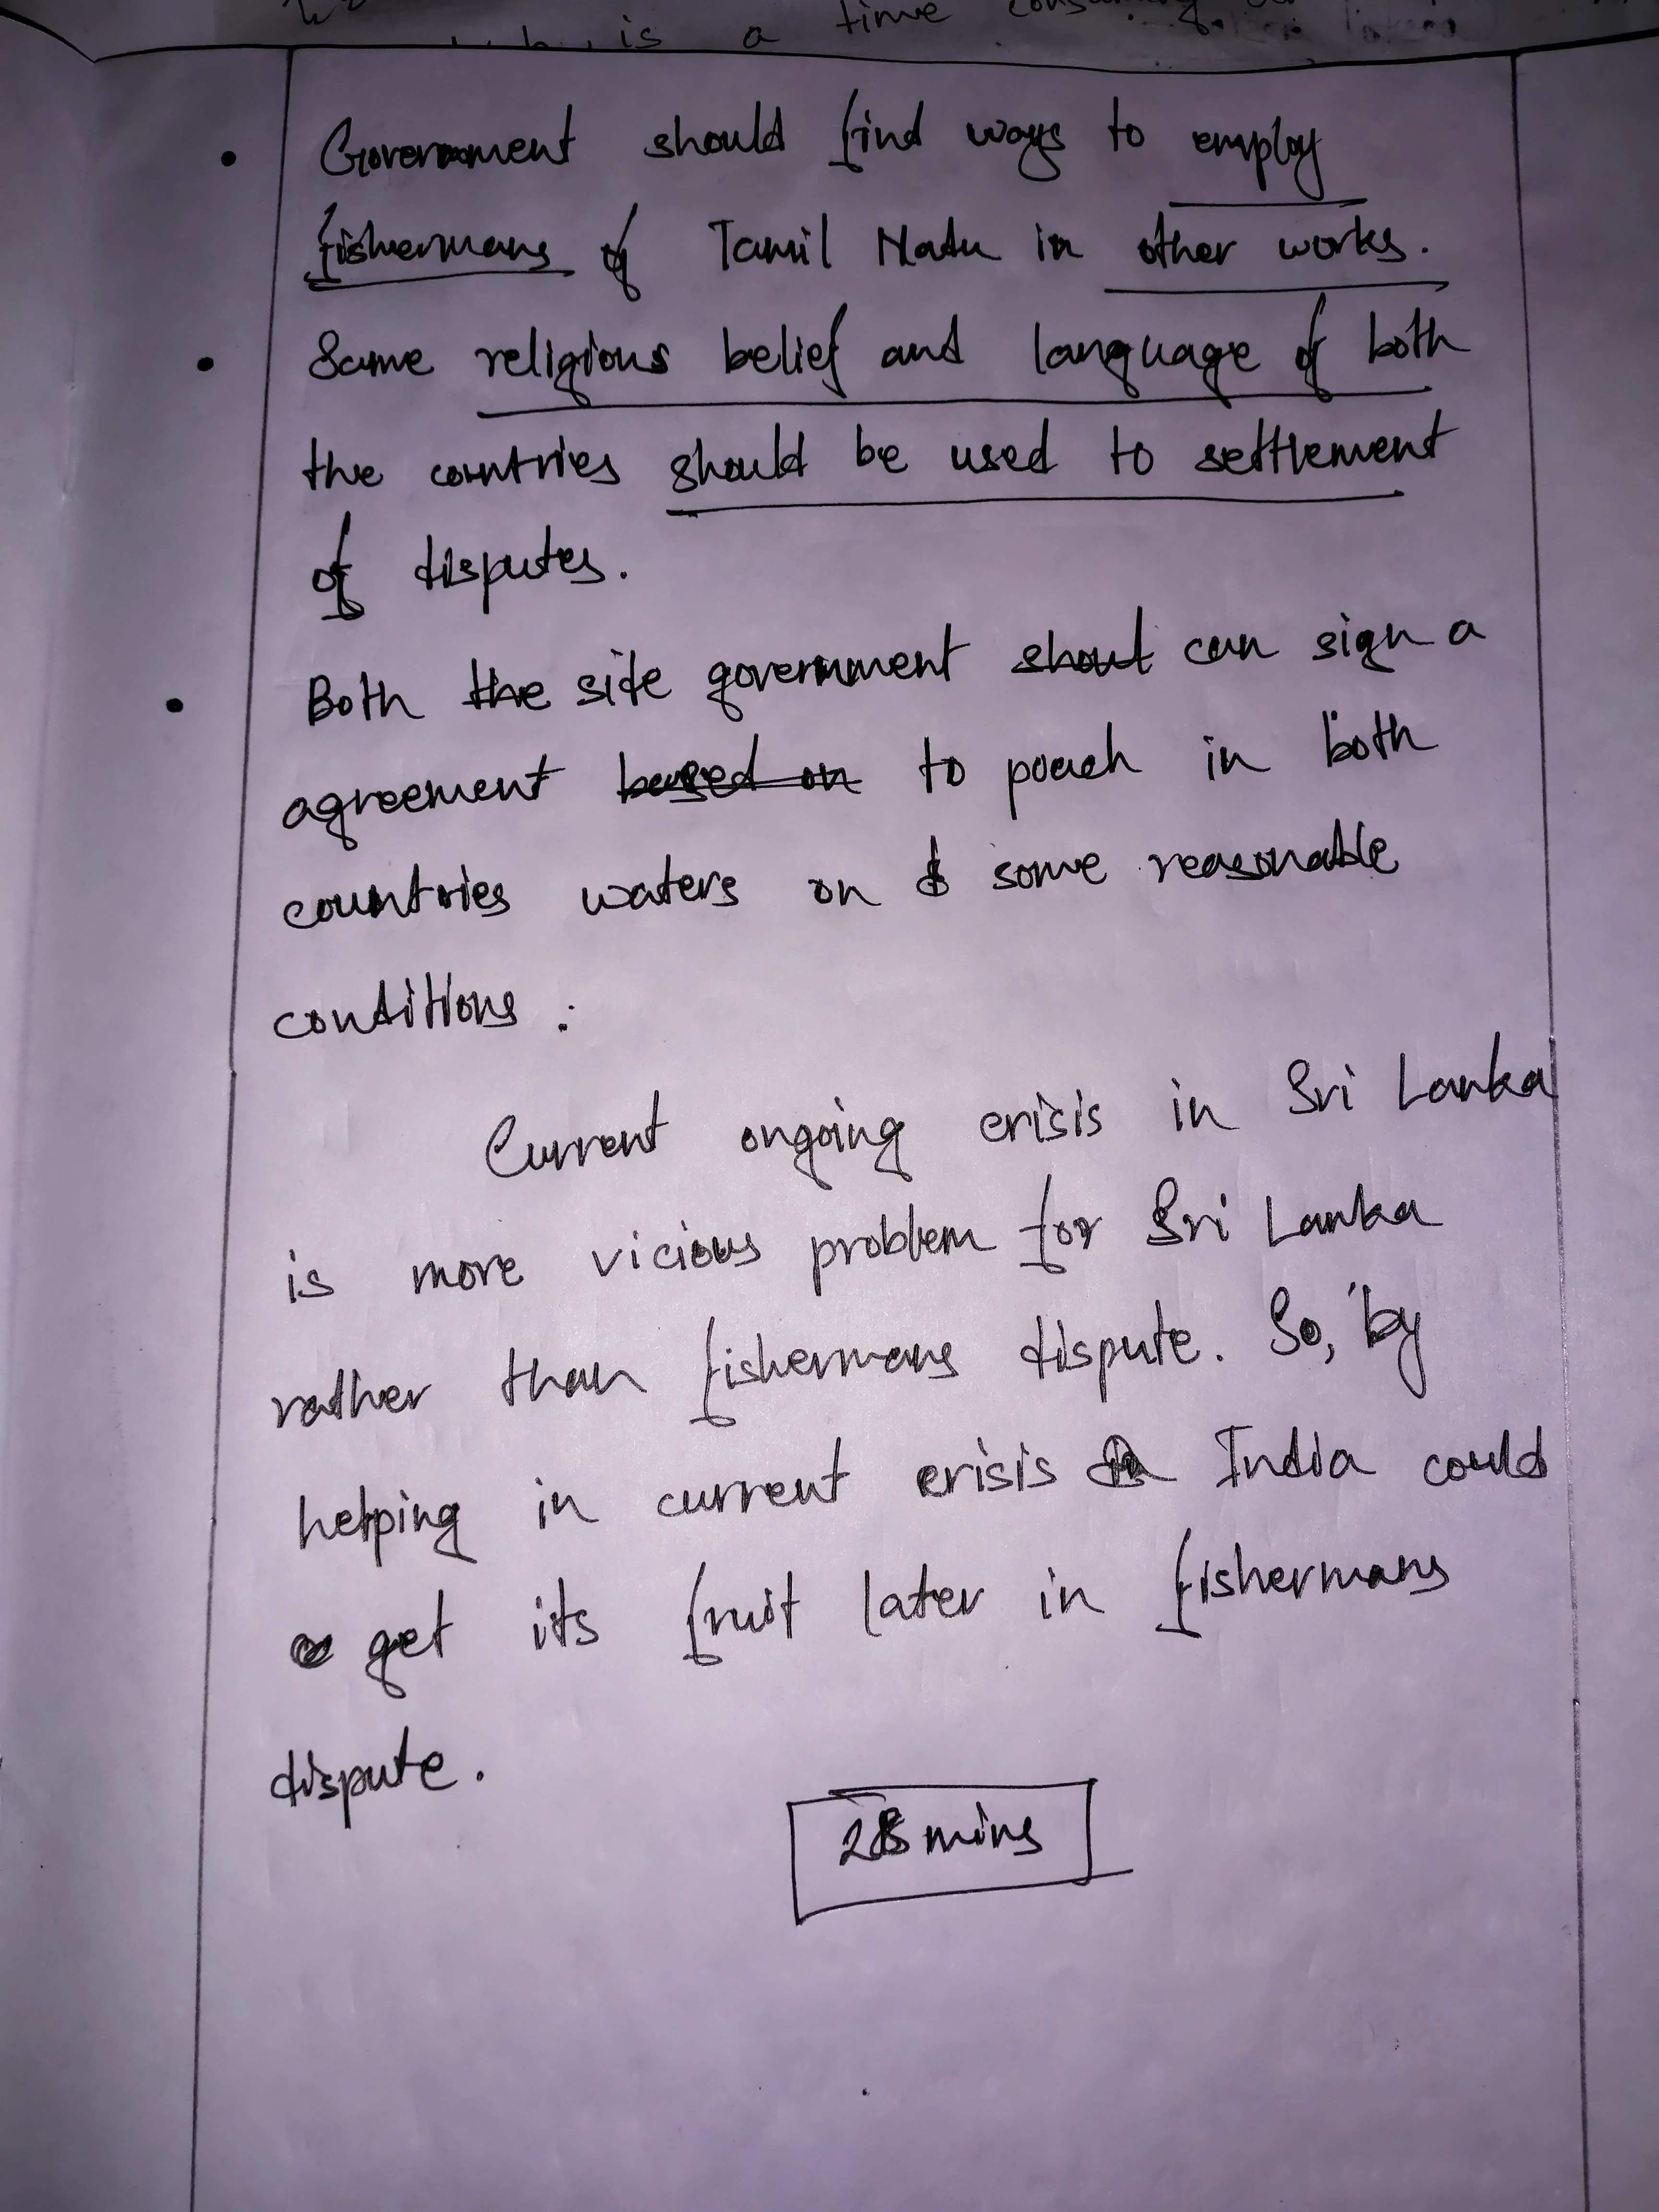 is a time
• Government should find ways to employ
fishermans of Tamil Nadu in other works.
• Same religious belief and language of both
the countries should be used to settlement
of disputes.
• Both the side government shoul can sign a
agreement based on to poach in both
countries waters on some reasonable
conditions.
Current ongoing crisis in Sri Lanka
is more vicious problem for Sri Lanka
rather than fishermans dispute. So, by
helping in current crisis India could
get its fruit later in fishermans
dispute.
mins